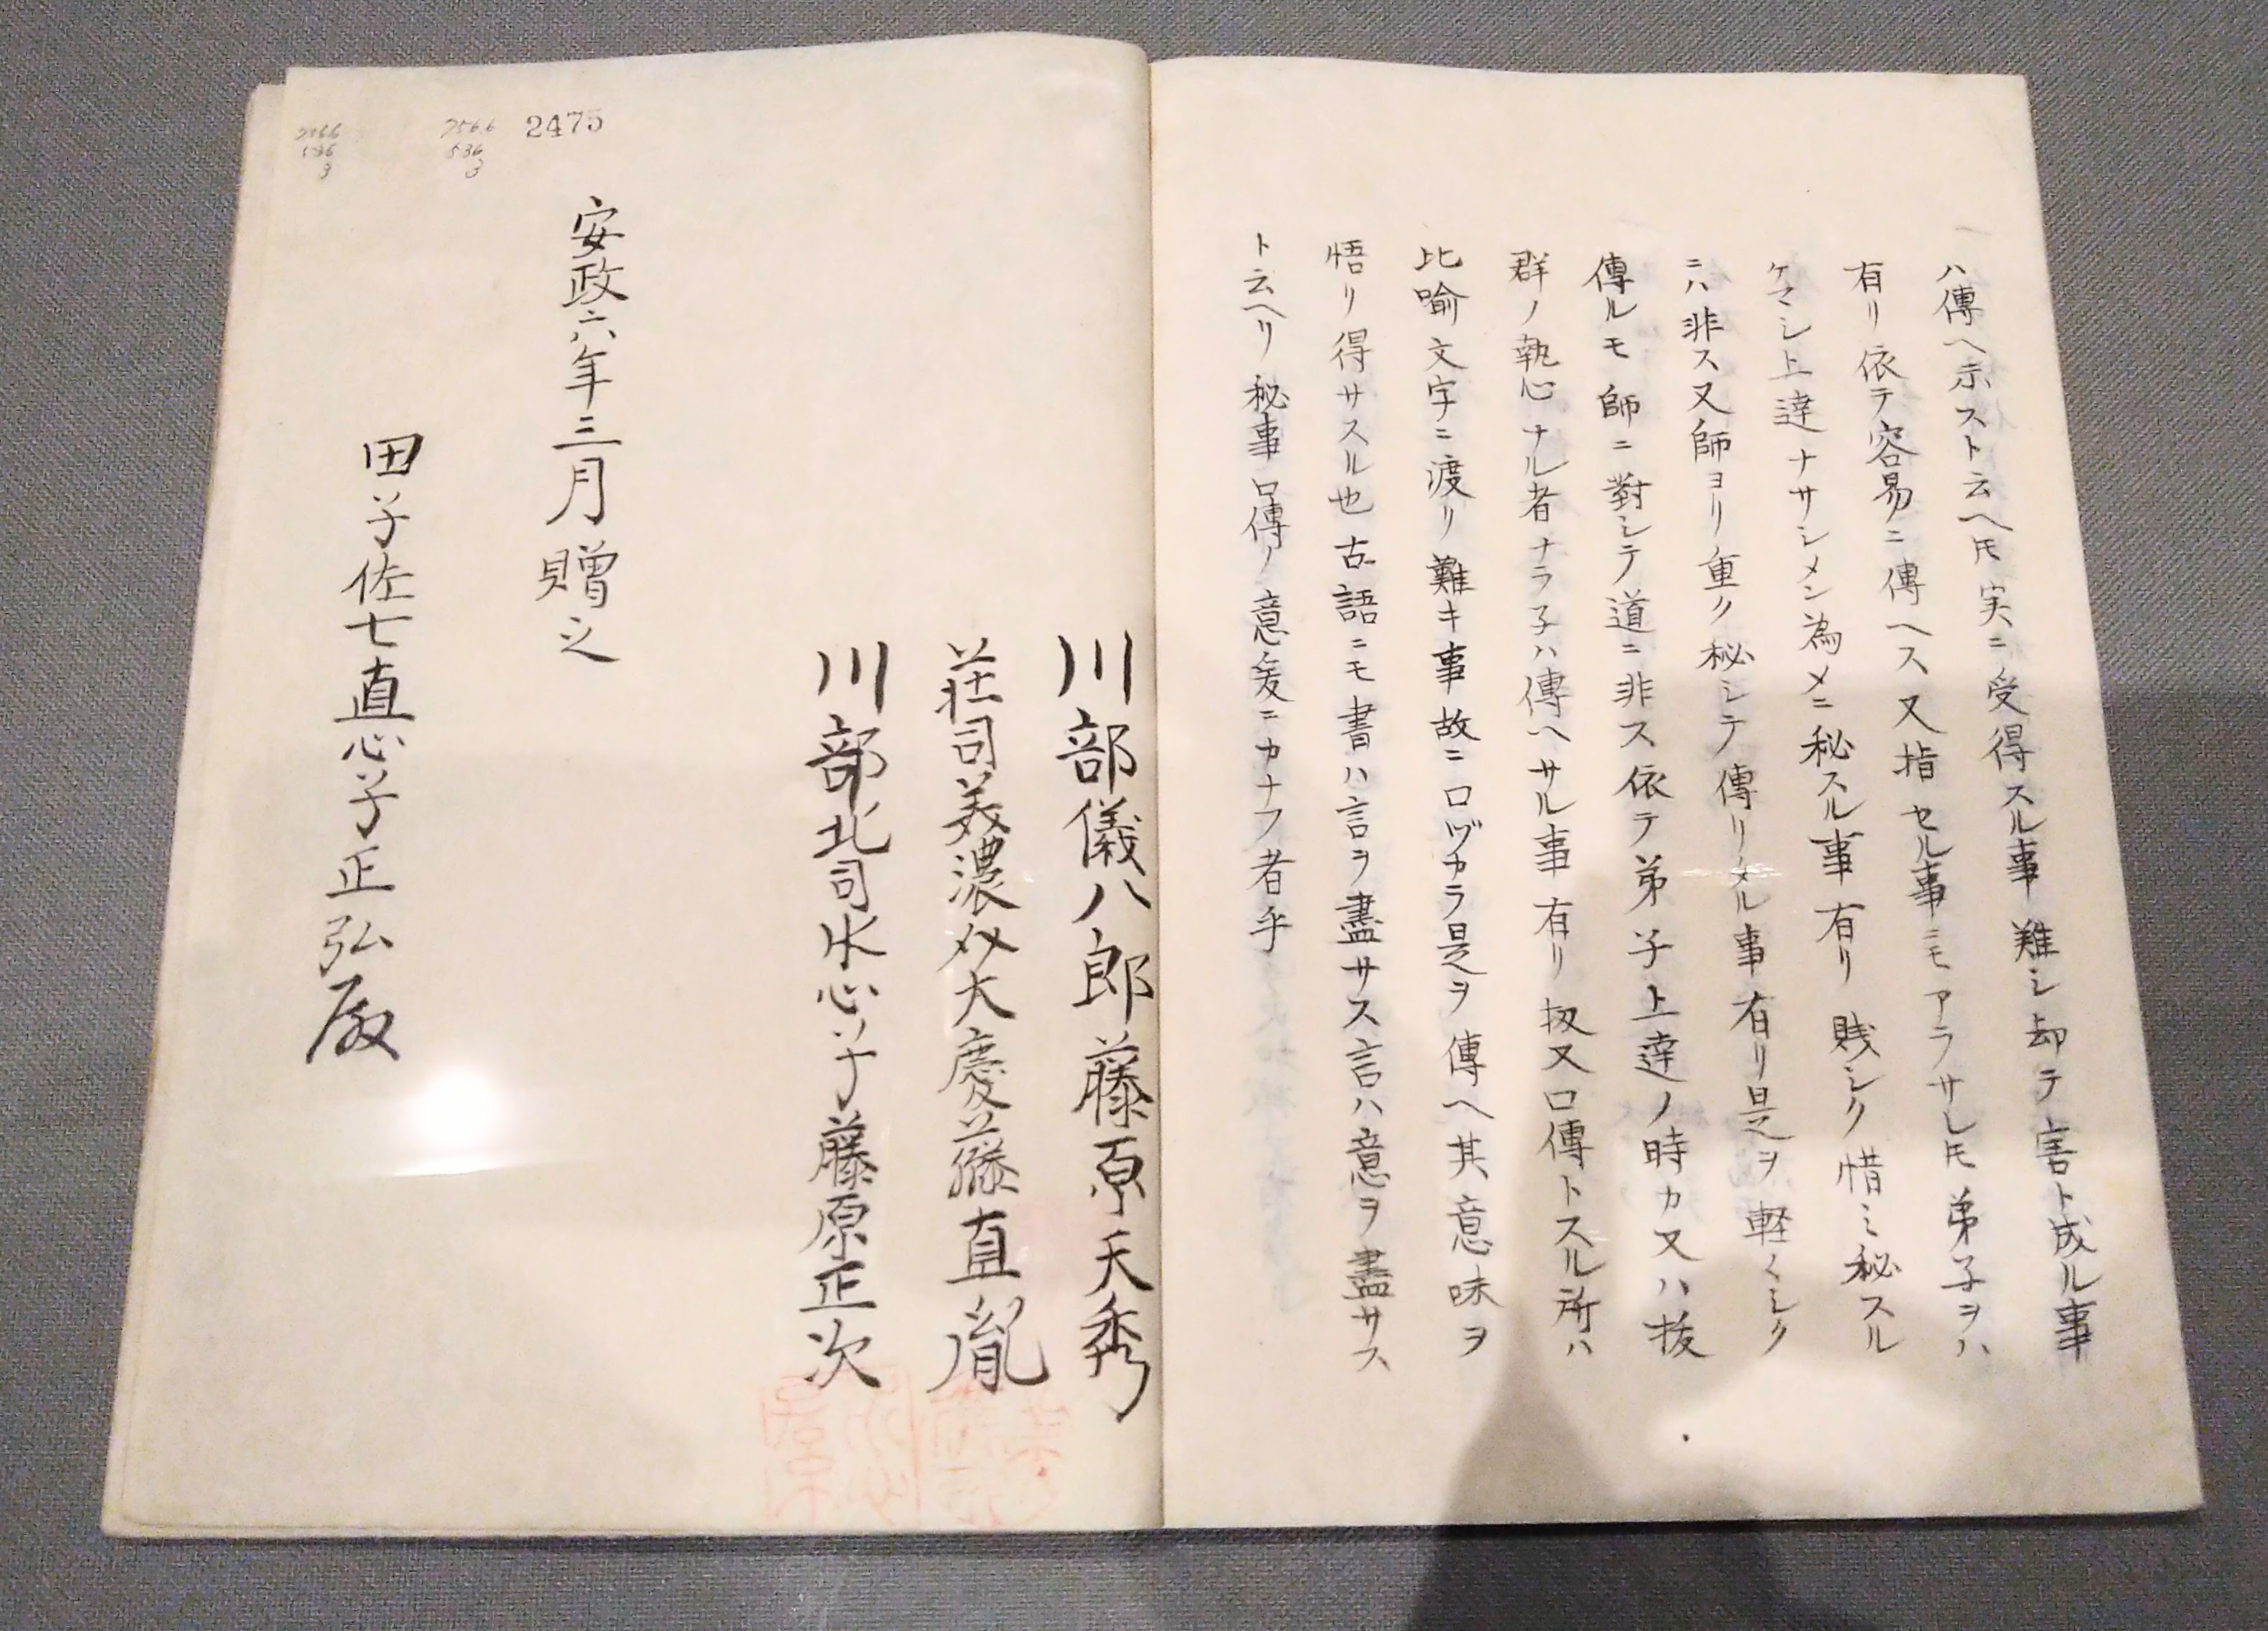 ハ傳ヘ示スト云ヘ𪜈実ニ受得スル事難シ却テ害ト成ル事
有リ依テ容易ニ傳ヘス又指セル事ニモアラサレ𪜈弟子ヲハ
ケマシ上達ナサシメン為メニ秘スル事有リ賎シク惜ミ秘スル
ニハ非ス又師ヨリ重ク秘シテ傳リメル事有リ是ヲ軽〱シク
傳ルモ師ニ對シテ道ニ非ス依テ弟子上達ノ時カ又ハ抜
群ノ執心ナル者ナラ子ハ傳ヘサル事有リ扨又口傳トスル所ハ
比喻文字ニ渡リ難キ事故ニ口ヅカラ是ヲ傳ヘ其意味ヲ
悟リ得サスル也古語ニモ書ハ言ヲ盡サス言ハ意ヲ盡サス
ト云ヘリ秘事口傳ノ意爰ニカナフ者乎
川部儀八郎藤原天秀
荘司美濃介大慶藤直胤
川部北司水心子藤原正次
安政六年三月贈之
田子佐七直心子正弘殿
2475
756.6
536
3